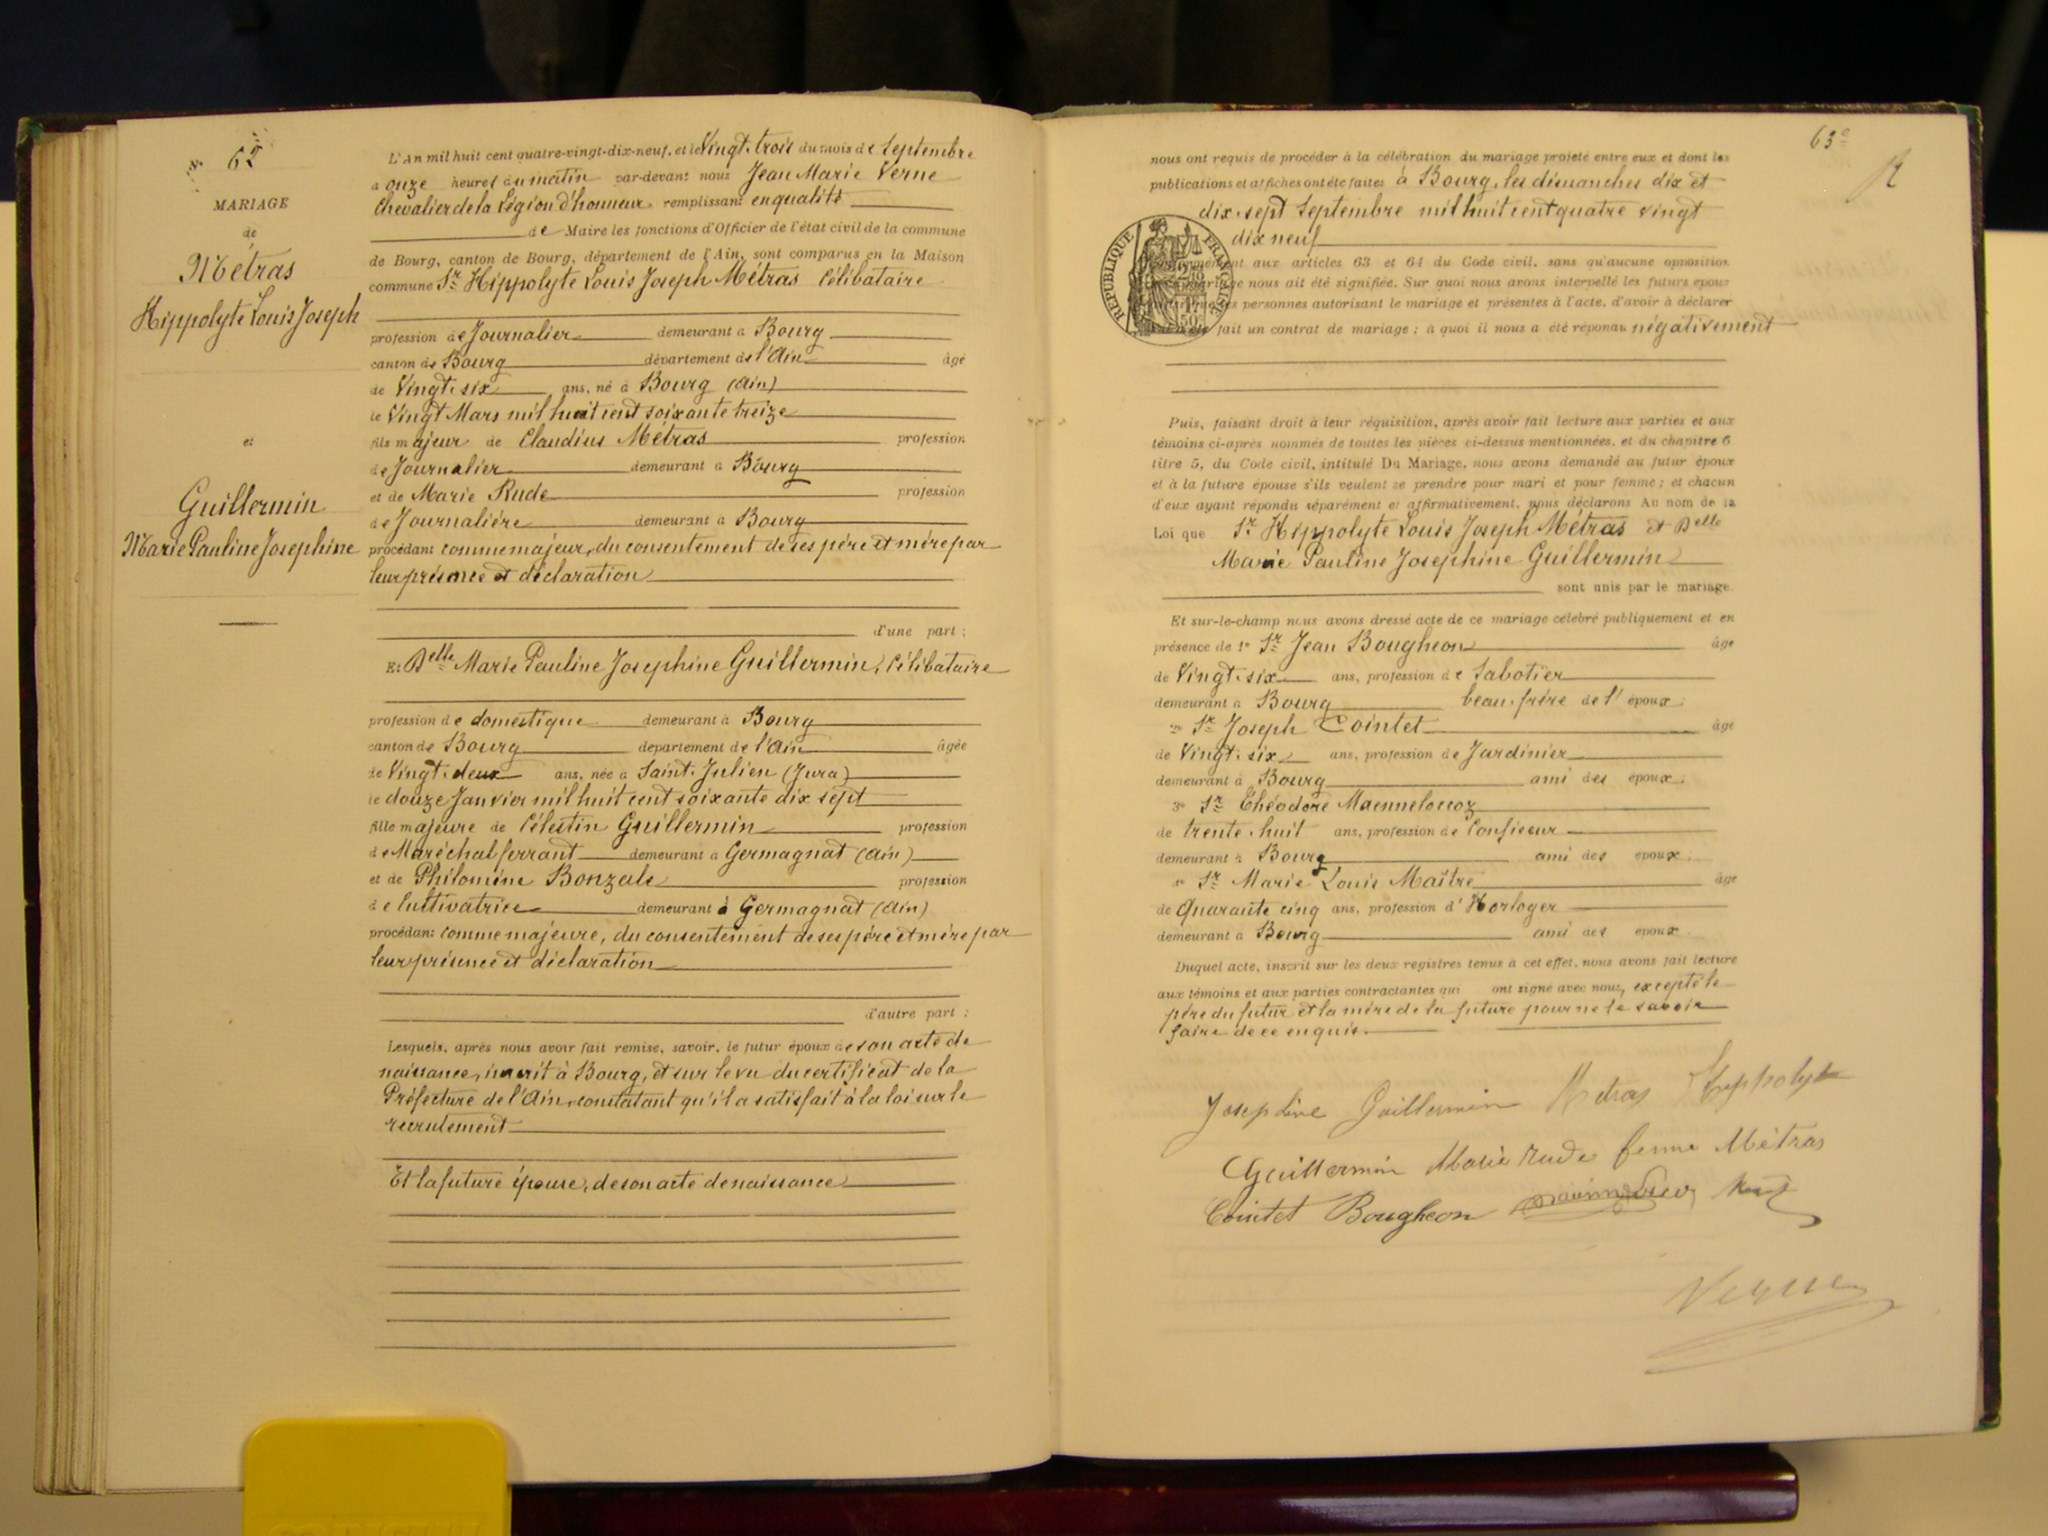 N° 62
MARIAGE
de
Métras
Hippolyte Louis Joseph
et
Guillermin
Marie Pauline Josephine
L'an mil huit cent quatre-vingt-dix-neuf, et le Vingt-trois du mois de Septembre
à onze heures du matin par-devant nous Jean Marie Verne
Chevalier de la Légion d'honneur remplissant en qualité
de Maire les fonctions d'Officier de l'état civil de la commune
de Bourg, canton de Bourg, département de l'Ain, sont comparus en la Maison
commune Sr Hippolyte Louis Joseph Métras Célibataire
profession de Journalier demeurant à Bourg
canton de Bourg département de l'Ain âgé
de Vingt-six ans, né à Bourg (Ain)
le Vingt Mars mil huit cent soixante treize
fils majeur de Claudius Métras profession
de Journalier demeurant à Bourg
et de Marie Rude profession
de Journalière demeurant à Bourg
procédant comme majeur, du consentement de ses père et mère par
leur présence et déclaration
d'une part ;
Et Delle Marie Pauline Josephine Guillermin, Célibataire
profession de domestique demeurant à Bourg
canton de Bourg département de l'Ain âgée
de Vingt-deux ans, née à Saint-Julien (Jura)
le douze Janvier mil huit cent soixante dix sept
fille majeure de Célestin Guillermin profession
de Maréchal ferrant demeurant à Germagnat (Ain)
et de Philomène Bonzale profession
de Cultivatrice demeurant à Germagnat (Ain)
procédant comme majeure, du consentement de ses père et mère par
leur présence et déclaration
d'autre part ;
Lesquels, après nous avoir fait remise, savoir, le futur époux de son acte de
naissance, inscrit à Bourg, et sur le vu du certificat de la
Préfecture de l'Ain, constatant qu'il a satisfait à la loi sur le
recrutement
Et la future épouse, de son acte de naissance
63e
nous ont requis de procéder à la célébration du mariage projeté entre eux et dont les
publications et affiches ont été faites à Bourg, les dimanches dix et
dix-sept Septembre mil huit cent quatre vingt
dix neuf
RÉPUBLIQUE FRANÇAISE
aux articles 63 et 64 du Code civil, sans qu'aucune opposition
mariage nous ait été signifiée. Sur quoi nous avons interpellé les futurs époux
les personnes autorisant le mariage et présentes à l'acte, d'avoir à déclarer
fait un contrat de mariage ; à quoi il nous a été répondu négativement
Puis, faisant droit à leur réquisition, après avoir fait lecture aux parties et aux
témoins ci-après nommés de toutes les pièces ci-dessus mentionnées, et du chapitre 6
titre 5, du Code civil, intitulé Du Mariage, nous avons demandé au futur époux
et à la future épouse s'ils veulent se prendre pour mari et pour femme ; et chacun
d'eux ayant répondu séparément et affirmativement, nous déclarons Au nom de la
Loi que Sr Hippolyte Louis Joseph Métras et Delle
Marie Pauline Josephine Guillermin
sont unis par le mariage.
Et sur-le-champ nous avons dressé acte de ce mariage célébré publiquement et en
présence de 1° Sr Jean Bougheon âgé
de Vingt-six ans, profession de Sabotier
demeurant à Bourg beau-frère de l'époux ;
2° Sr Joseph Cointet âgé
de Vingt-six ans, profession de Jardinier
demeurant à Bourg ami des époux ;
3° Sr Théodore Maennelocoz
de trente-huit ans, profession de Confiseur
demeurant à Bourg ami des époux ;
4° Sr Marie Louis Maître âgé
de Quarante cinq ans, profession d'Horloger
demeurant à Bourg ami des époux.
Duquel acte, inscrit sur les deux registres tenus à cet effet, nous avons fait lecture
aux témoins et aux parties contractantes qui ont signé avec nous, excepté le
père du futur et la mère de la future pour ne le savoir
faire de ce enquis.
Josephine Guillermin Métras Hyppolyte
Guillermin Marie Rude femme Métras
Cointet Bougheon
Verne